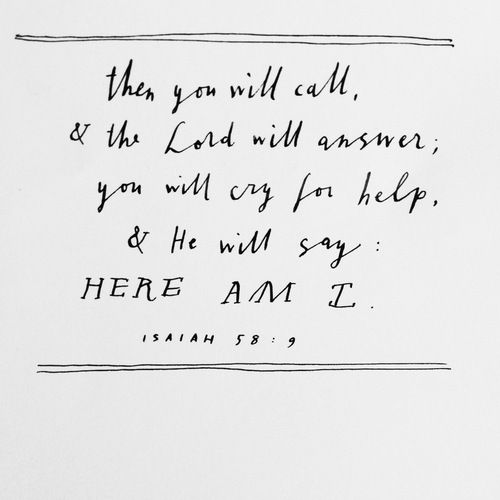 then you will call,
& the Lord will answer;
you will cry for help,
& He will say:
HERE AM I.
ISAIAH 58:9